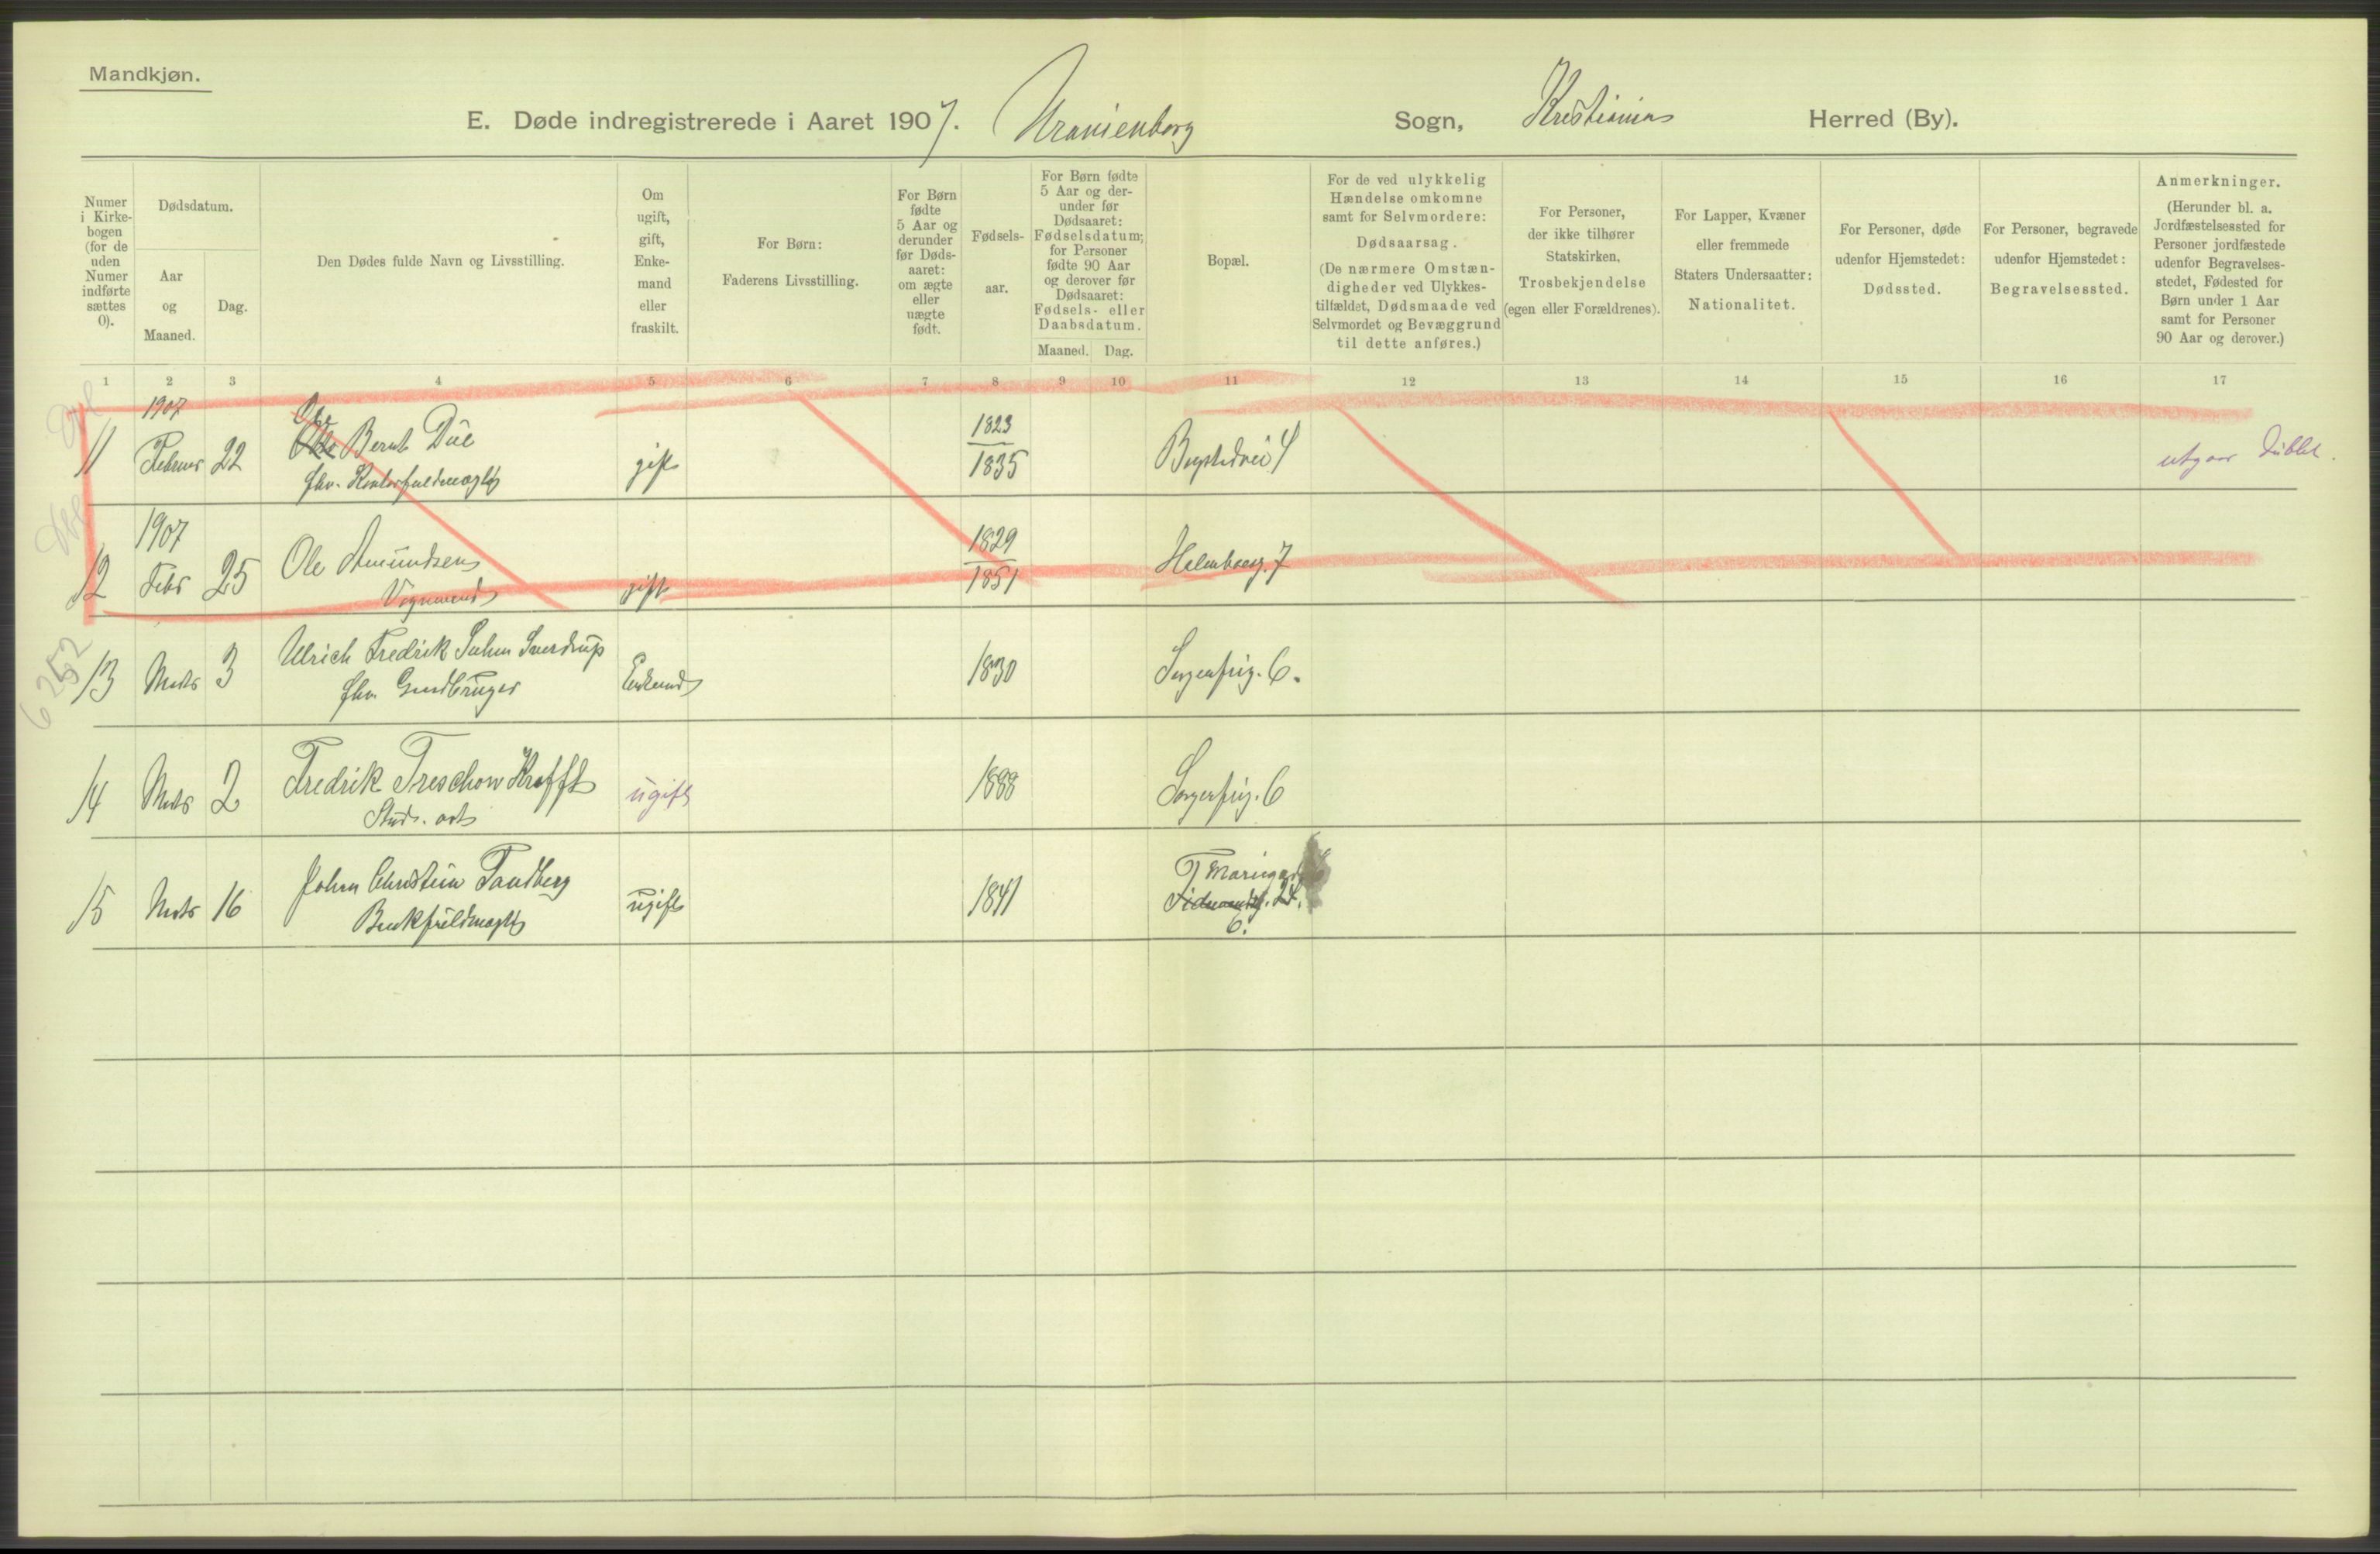 Mandkjøn.
E. Døde indregistrerede i Aaret 1907. Uranienborg Sogn, Kristiania Herred (By).
Numer i Kirkebogen (for de uden Numer indførte sættes 0).
Dødsdatum.
Aar og Maaned.
Dag.
Den Dødes fulde Navn og Livsstilling.
Om ugift, gift, Enkemand eller fraskilt.
For Børn:
Faderens Livsstilling.
For Børn fødte 5 Aar og derunder før Dødsaaret: om ægte eller uægte født.
Fødselsaar.
For Børn fødte 5 Aar og derunder før Dødsaaret: Fødselsdatum; for Personer fødte 90 Aar og derover før Dødsaaret: Fødsels- eller Daabsdatum.
Maaned. Dag.
Bopæl.
For de ved ulykkelig Hændelse omkomne samt for Selvmordere:
Dødsaarsag.
(De nærmere Omstændigheder ved Ulykkestilfældet, Dødsmaade ved Selvmordet og Bevæggrund til dette anføres.)
For Personer, der ikke tilhører Statskirken,
Trosbekjendelse
(egen eller Forældrenes).
For Lapper, Kvæner eller fremmede Staters Undersaatter:
Nationalitet.
For Personer, døde udenfor Hjemstedet:
Dødssted.
For Personer, begravede udenfor Hjemstedet:
Begravelsessted.
Anmerkninger.
(Herunder bl. a. Jordfæstelsessted for Personer jordfæstede udenfor Begravelsesstedet, Fødested for Børn under 1 Aar samt for Personer 90 Aar og derover.)
1 2 3 4 5 6 7 8 9 10 11 12 13 14 15 16 17
1907 1823
11 Februar 22 Bernt Due gift 1835 4 utgaar Dublet.
fhv. Kontorfuldmægtig
1907 1829
12 Febr 25 Ole Amundsen gift 1851 Holmboesg. 7
Vognmand
6252
13 Marts 3 Ulrich Fredrik Suhm Sverdrup Enkemand 1830 Sorgenfrig. 6.
fhv. Gaardbruger
14 Marts 2 Fredrik Treschow Krafft ugift 1888 Sorgenfrig. 6
Stud. art
15 Marts 16 Johan Christian Tandberg ugift 1841 T Meriesgd
Bankfuldmægtig
6.